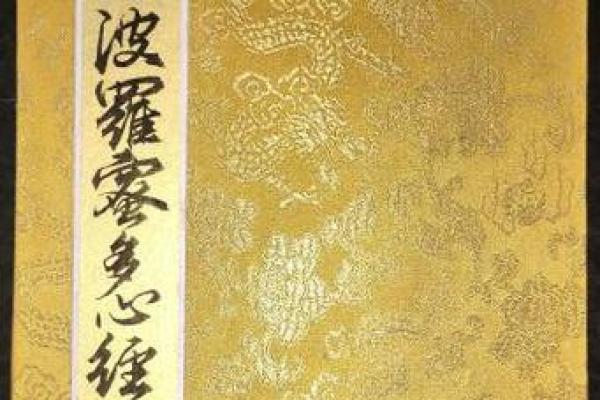 波羅蜜多心經